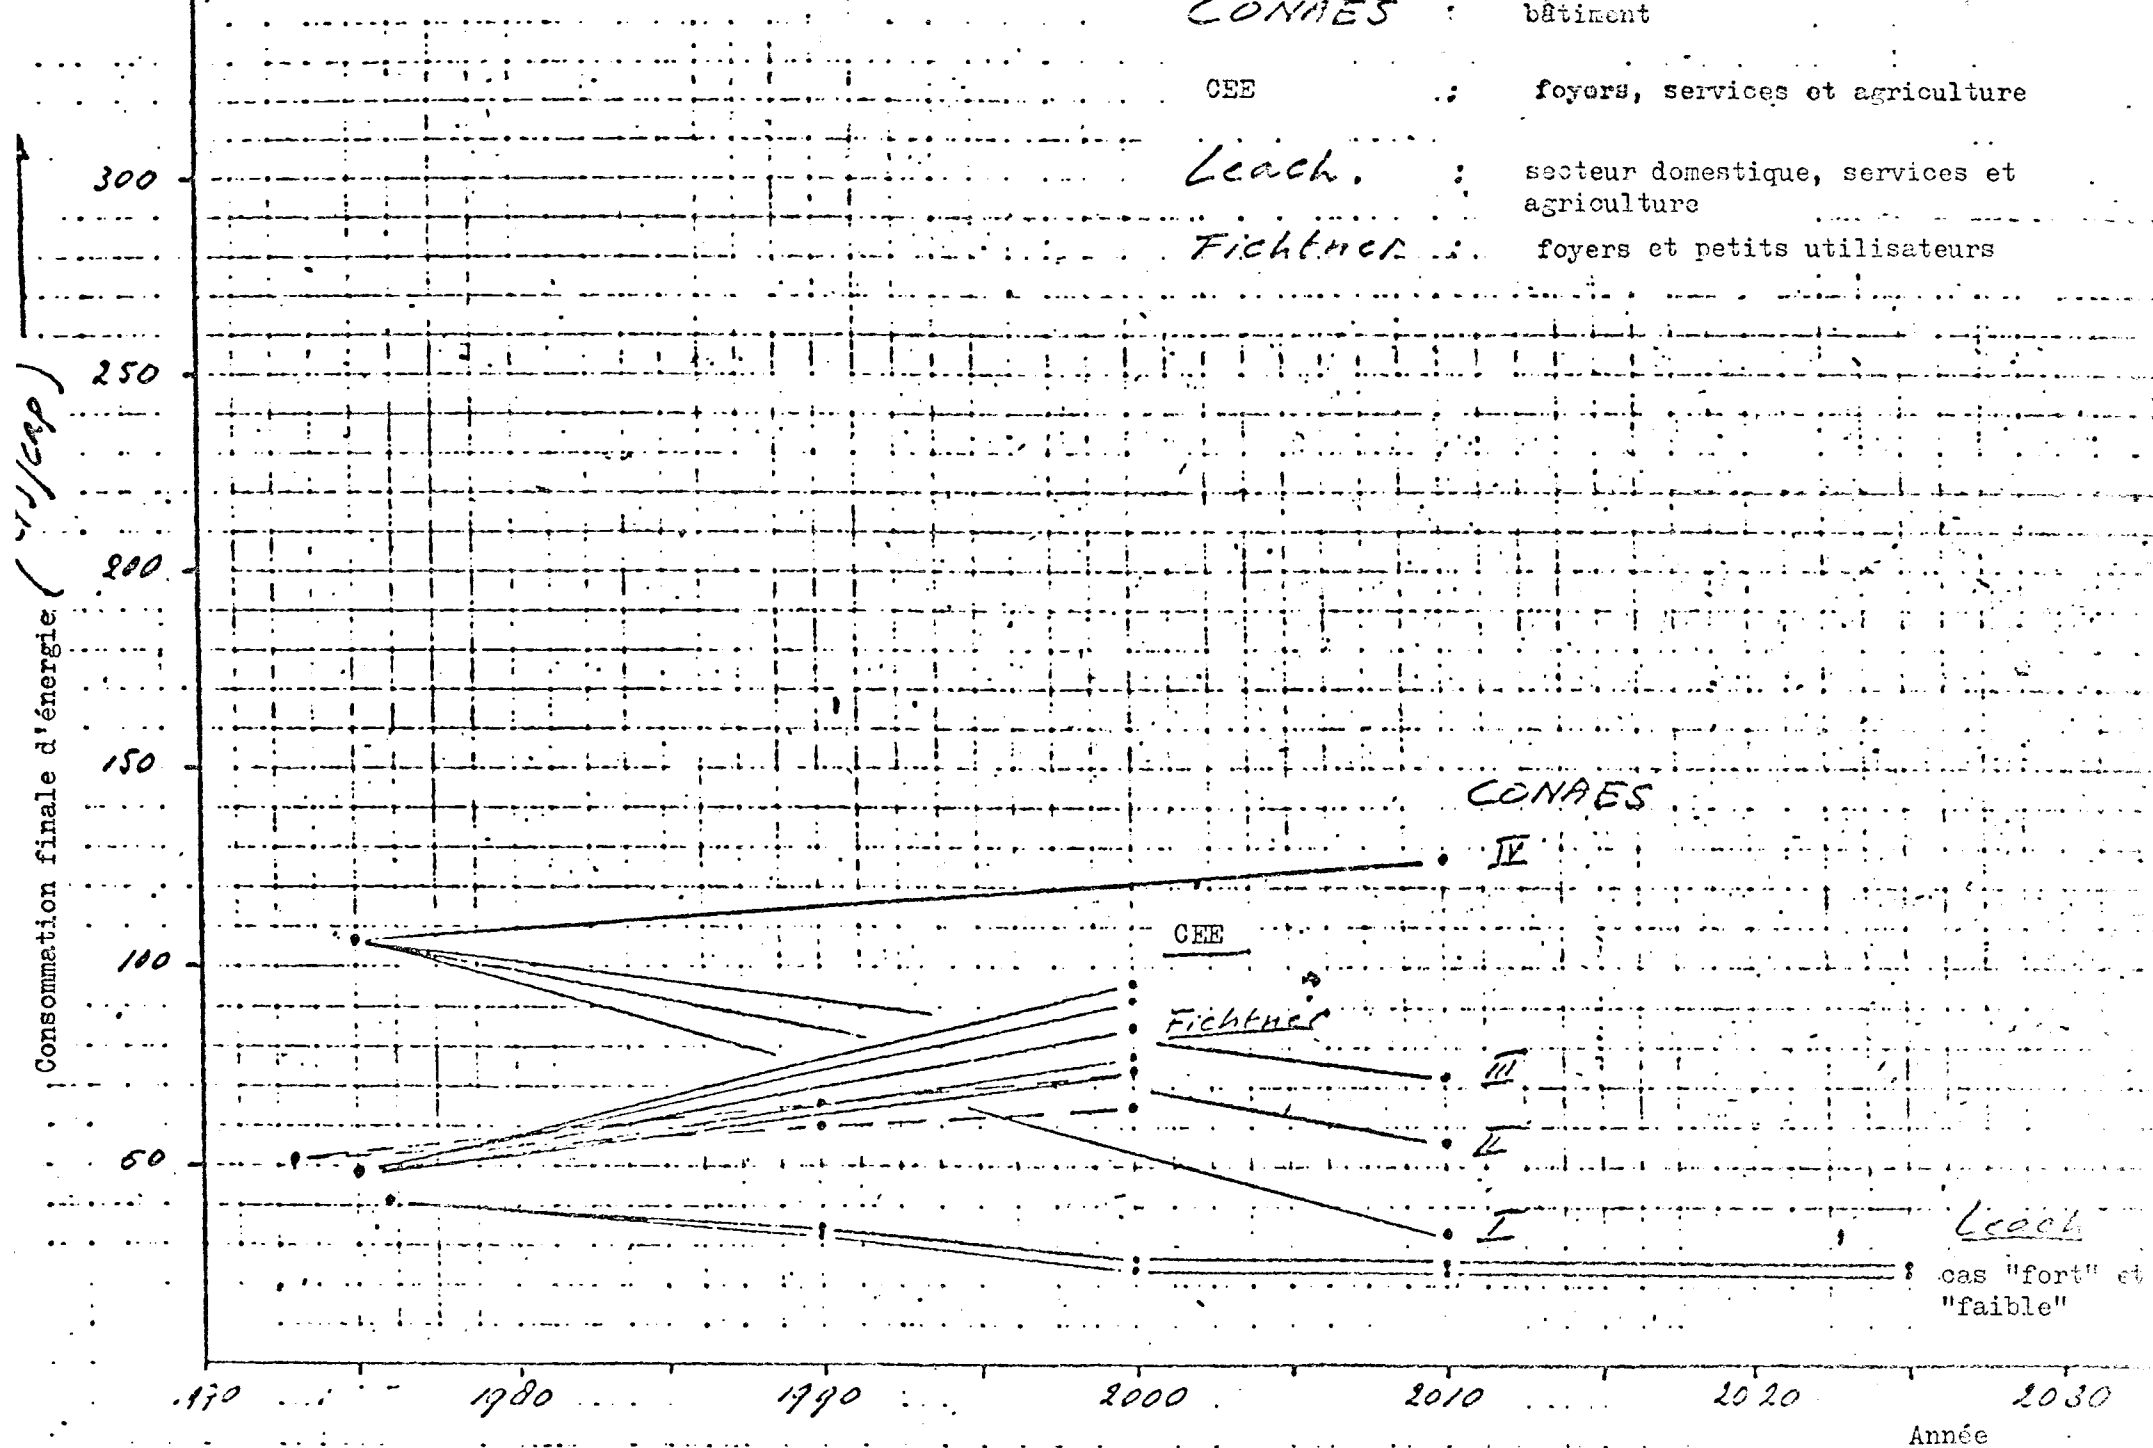 CONAES : bâtiment
CEE : foyers, services et agriculture
Leach. : secteur domestique, services et
agriculture
Fichtner : foyers et petits utilisateurs
Consommation finale d'énergie
300
250
200
150
100
50
CONAES
IV
CEE
Fichtner
III
II
I
Leach
cas "fort" et
"faible"
1970 1980 1990 2000 2010 2020 2030
Année